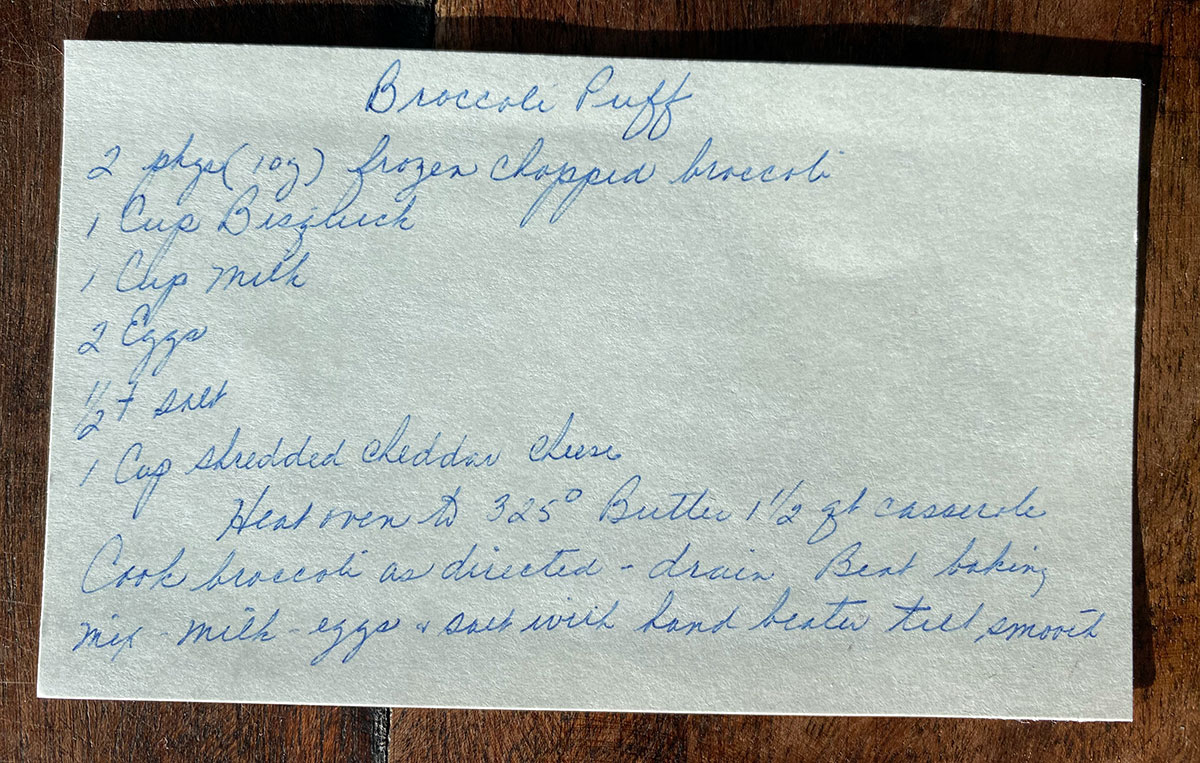 Broccoli Puff
2 pkgs (10 oz) frozen chopped broccoli
1 Cup Bisquick
1 Cup milk
2 Eggs
1/2 t salt
1 Cup shredded cheddar cheese
Heat oven to 325° Butter 1 1/2 qt casserole
Cook broccoli as directed - drain Beat baking
mix - milk - eggs & salt with hand beater till smooth